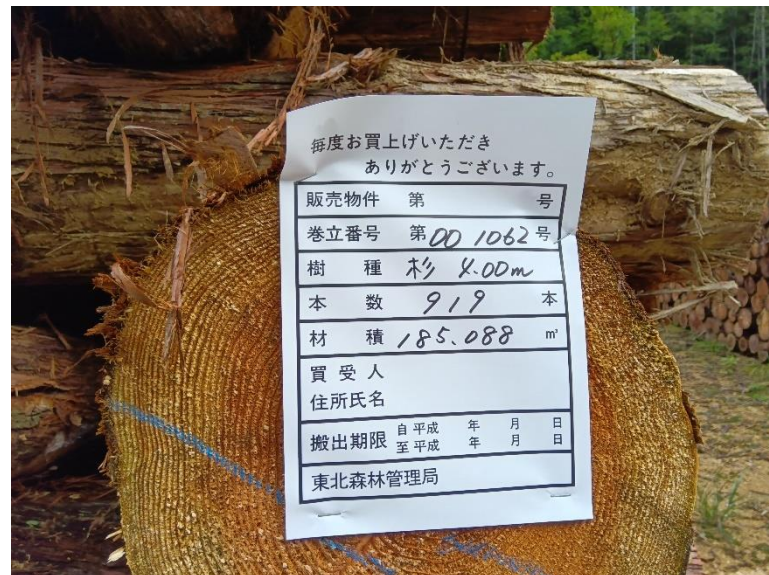 毎度お買上げいただき
ありがとうございます。
販売物件 第 号
巻立番号 第00 1062号
樹種 杉 4.00m
本数 919 本
材積 185.088 m³
買受人
住所氏名
搬出期限 自平成 年 月 日
至平成 年 月 日
東北森林管理局